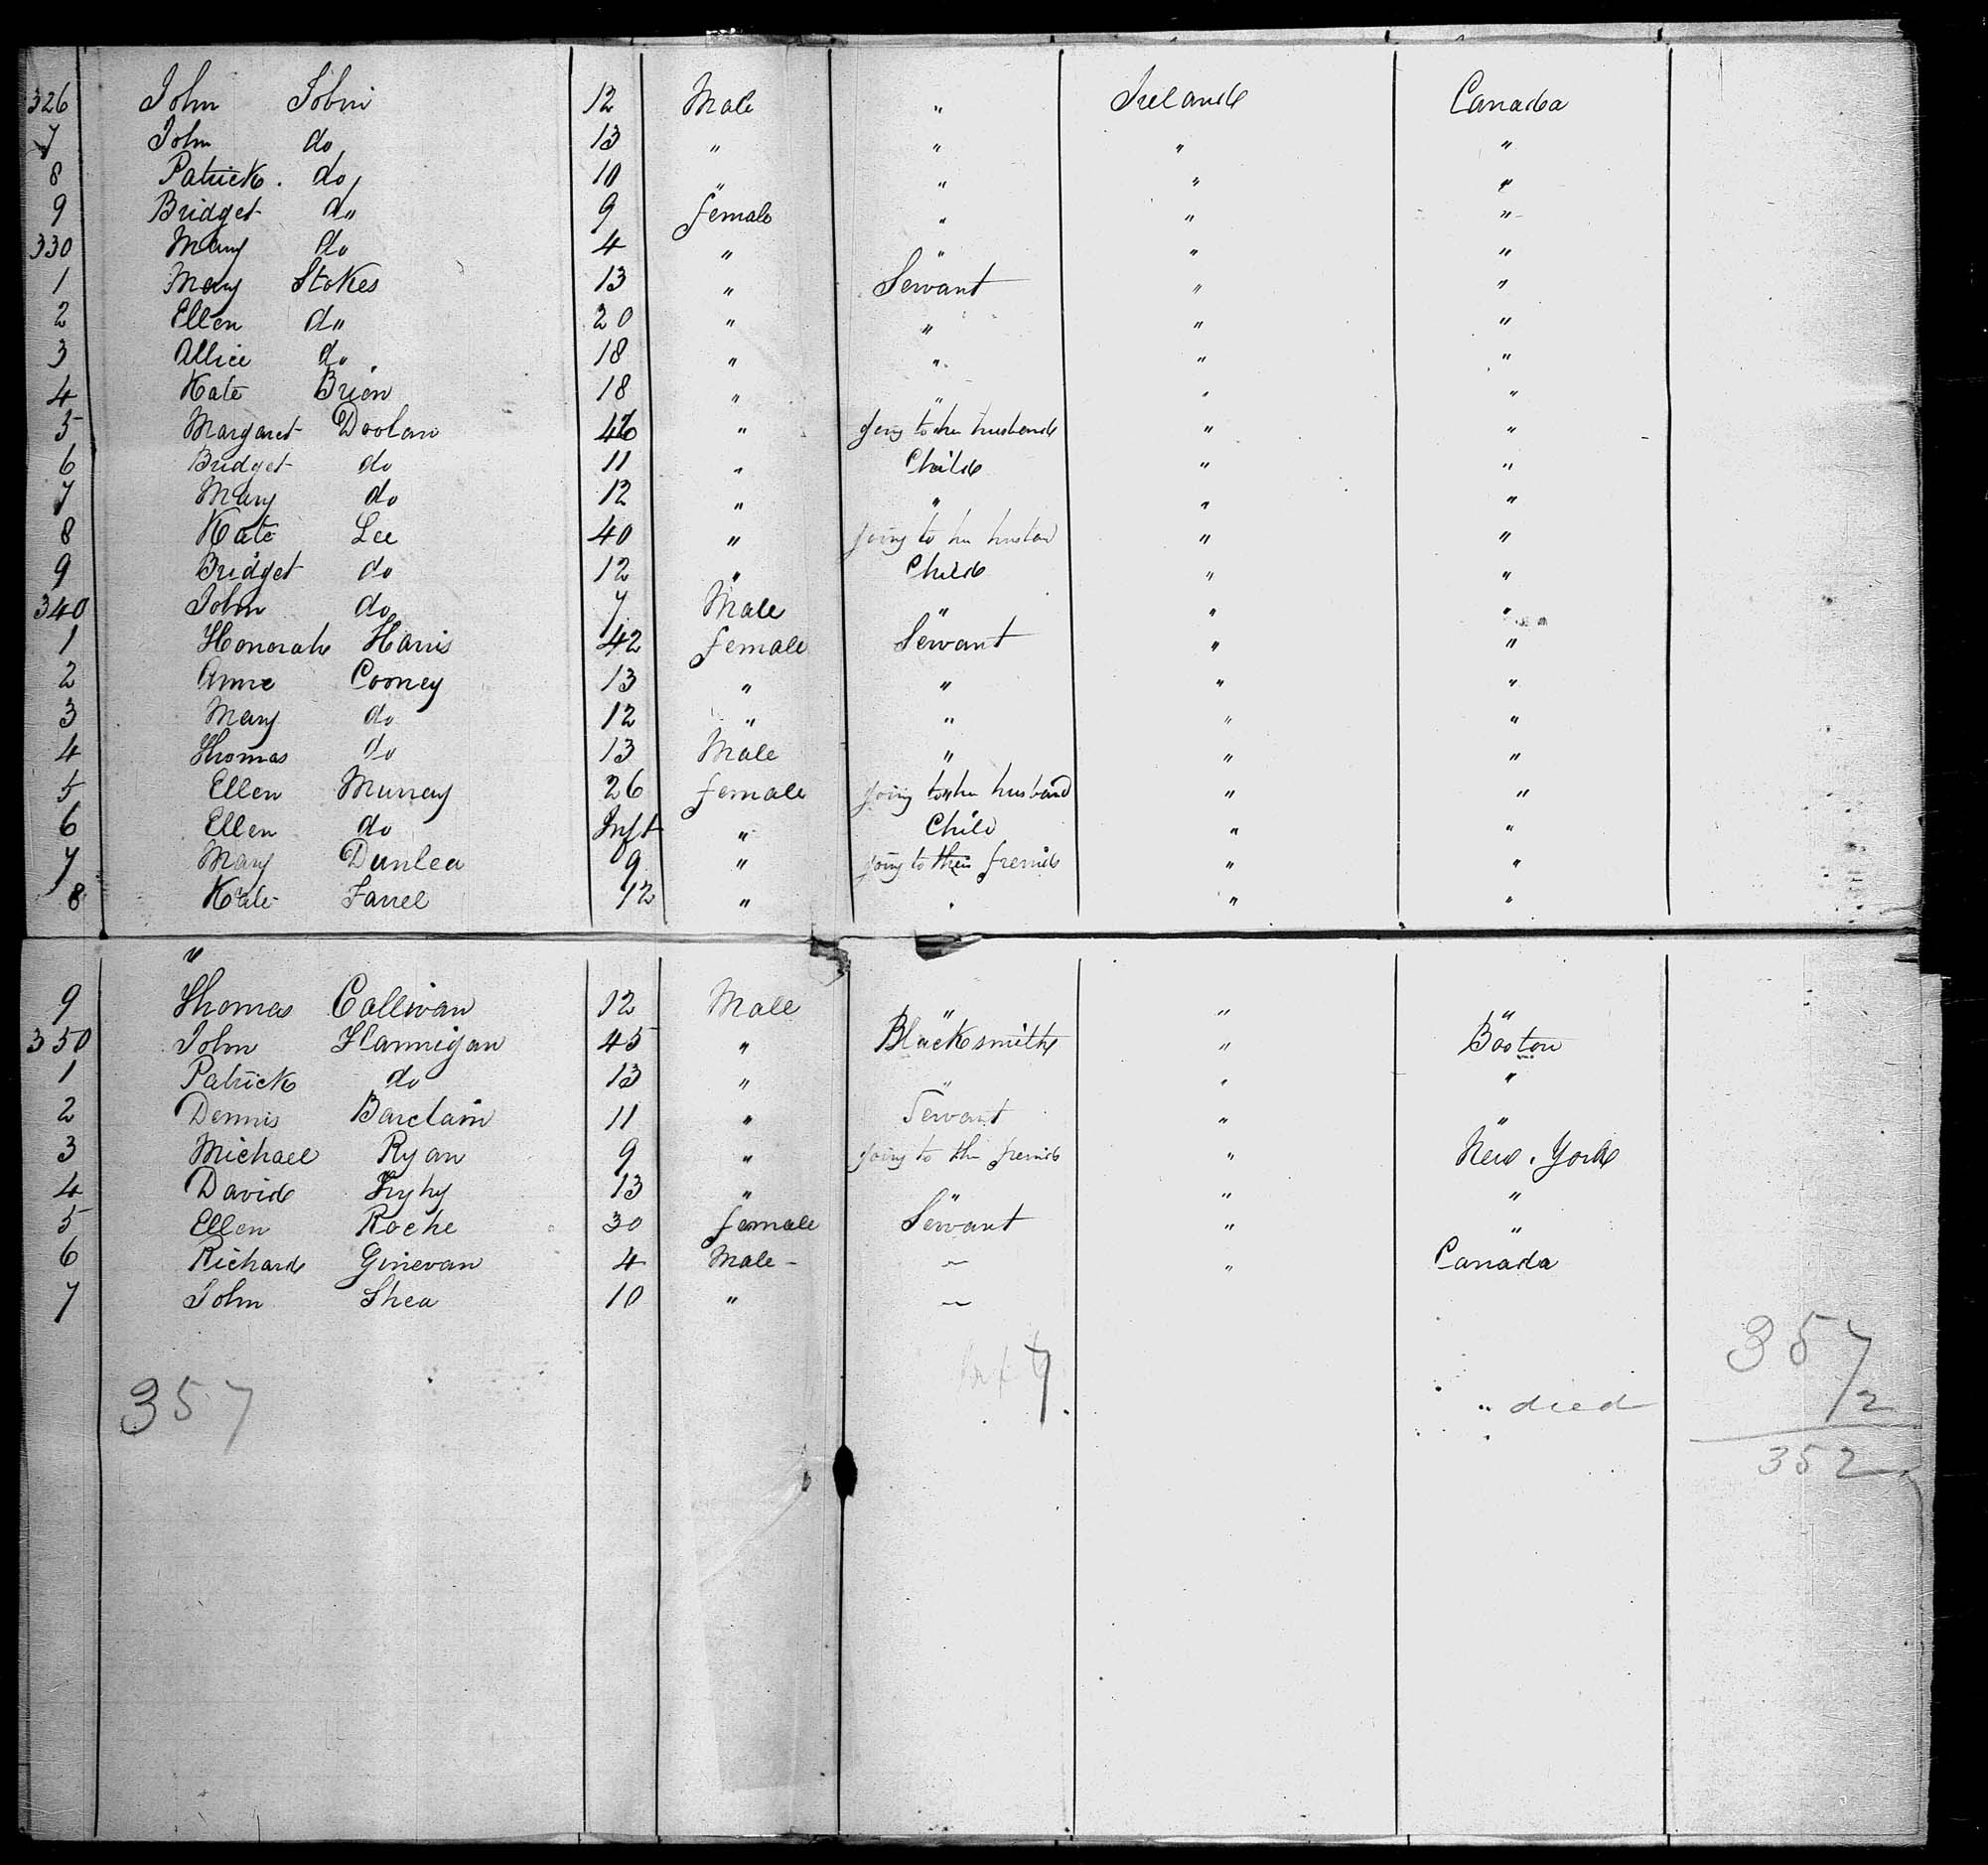 326 John Tobin 12 Male " Ireland Canada
7 John do 13 " " " "
8 Patrick. do 10 " " " "
9 Bridget do 9 female " " "
330 Mary do 4 " " " "
1 Mary Stokes 13 " Servant " "
2 Ellen do 20 " " " "
3 Allice do 18 " " " "
4 Kate Brien 18 " " " "
5 Margaret Doolan " going to her husband " "
6 Bridget do 11 " Child " "
7 Mary do 12 " " " "
8 Kate Lee 40 " going to her husban " "
9 Bridget do 12 " Child " "
340 John do 7 Male " " "
1 Honorah Harris 42 female Servant " "
2 Anne Comey 13 " " " "
3 Mary do 12 " " " "
4 Thomas do 13 Male " " "
5 Ellen Murray 26 female going to her husband " "
6 Ellen do Inft " Child " "
7 Mary Dunlea 9 " going to their friends " "
8 Kate Farrel 12 " " " "
"
9 Thomas Callivan 12 Male " " "
350 John Hannigan 45 " Blacksmith " Boston
1 Patrick do 13 " " " "
2 Dennis Barclain 11 " Servant " "
3 Michael Ryan 9 " going to the friends " New York
4 David 13 " " " "
5 Ellen Roche 30 female Servant " "
6 Richard Ginevan 4 Male - ~ " Canada
7 John Shea 10 " ~
357
7
" died
357
/2
352